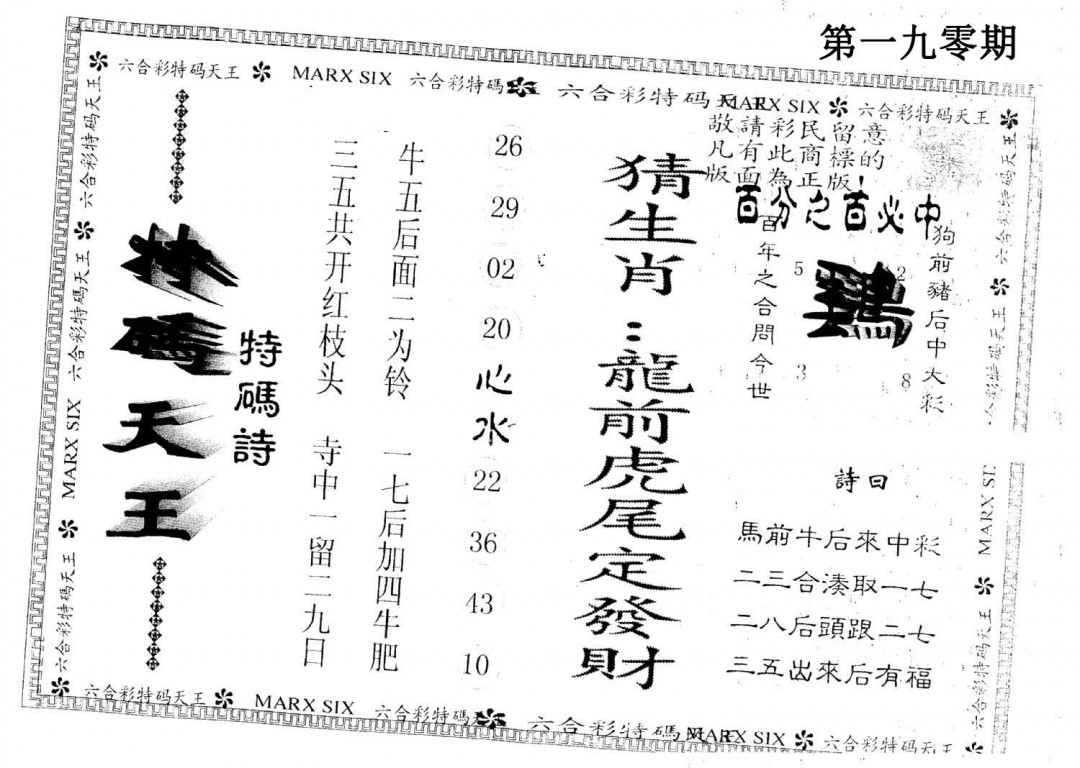 第一九零期
六合彩特码天王 MARX SIX 六合彩特碼 六合彩特碼天王 MARX SIX 六合彩特码天王
敬請彩民留意
凡有此商標的
版版面為正版!
百分之百必中
狗前豬后中大彩
5 2
鷄
3 8
百年之合問今世
猜生肖:龍前虎尾定發財
詩曰
馬前牛后來中彩
二三合湊取一七
二八后頭跟二七
三五出來后有福
26
29
02
20
心水
22
36
43
10
牛五后面二为铃 一七后加四牛肥
三五共开红枝头 寺中一留二九日
特碼詩
特碼天王
六合彩特码天王 六合彩特码天王 MARX SIX 六合彩特码天王
六合彩特码天王 六合彩特码天王 MARX SIX 六合彩特码天王
六合彩特码天王 MARX SIX 六合彩特碼 六合彩特碼 MARX SIX 六合彩特码天王